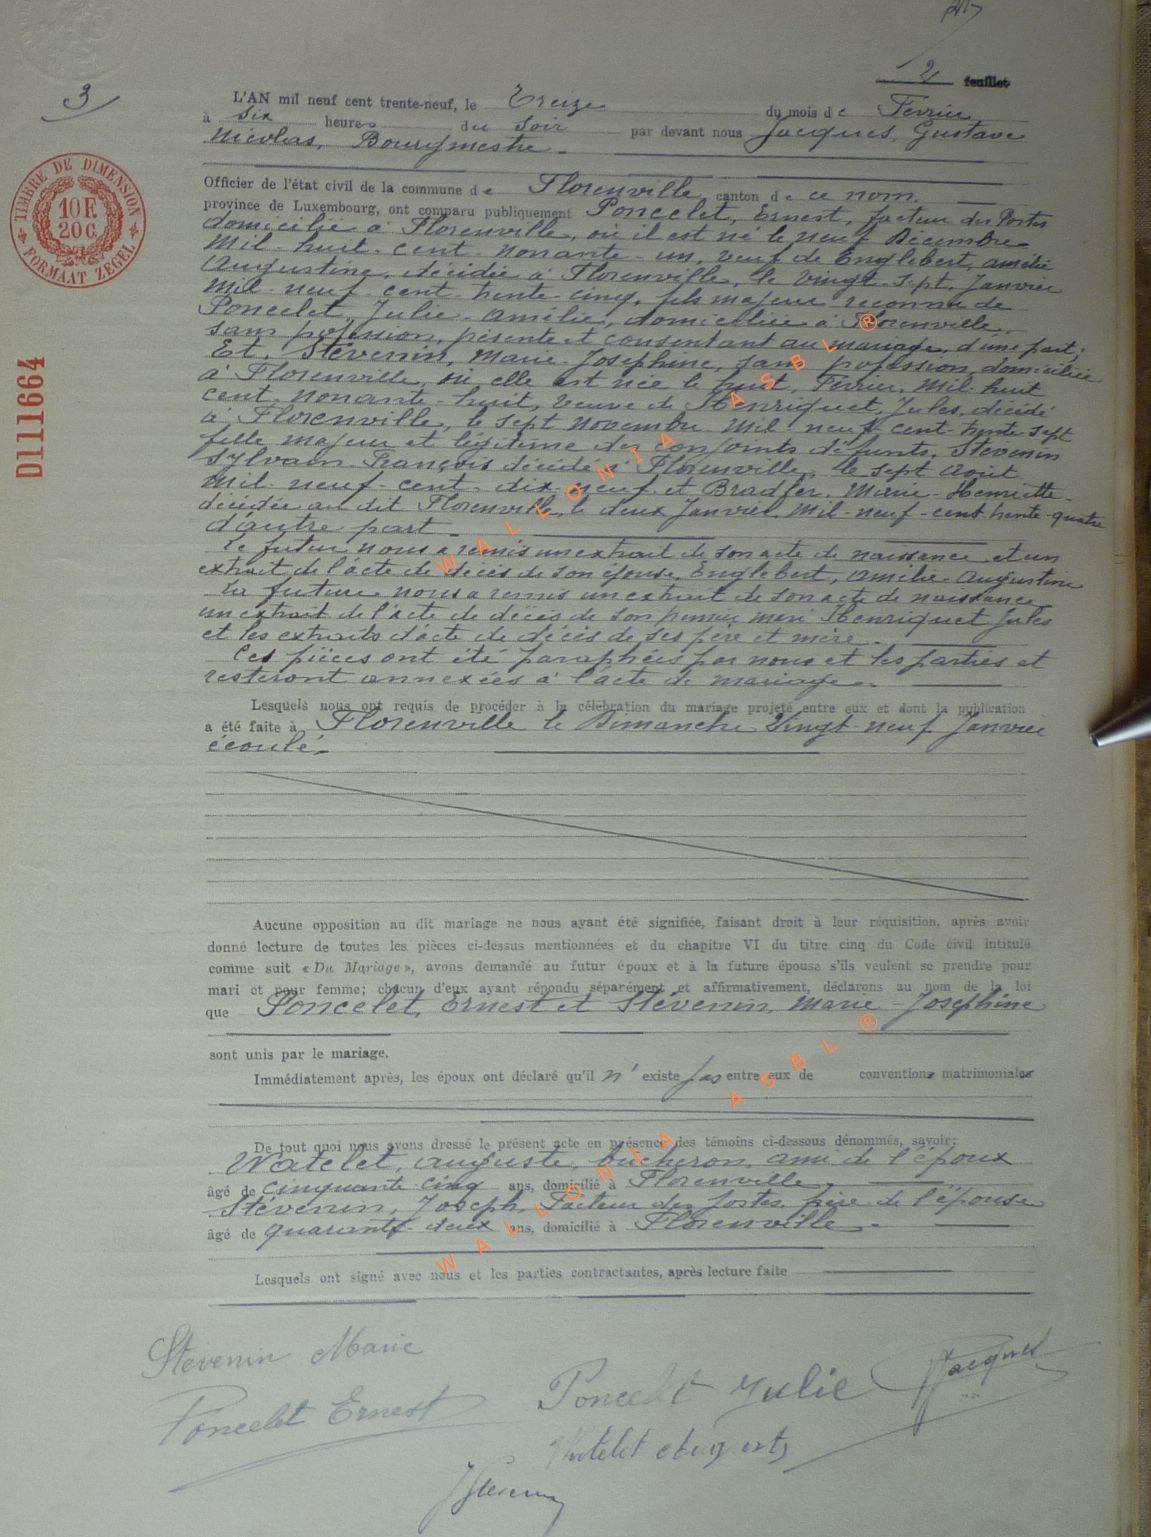 2 feuillet
3
L'AN mil neuf cent trente-neuf, le Treize du mois de Fevrier
à six heures du soir par devant nous Jacques, Gustave
Nicolas, Bourgmestre
TIMBRE DE DIMENSION
10 F.
20 C.
FORMAAT ZEGEL
Officier de l'état civil de la commune de Florenville canton de ce nom.
province de Luxembourg, ont comparu publiquement Poncelet, Ernest, facteur des Postes
domicilié à Florenville, où il est né le neuf Décembre
Mil-huit-cent-nonante-un, veuf de Englebert, Amélie
Augustine, décédée à Florenville, le vingt-sept Janvier
Mil-neuf-cent-trente-cinq, fils majeur reconnu de
Poncelet, Julie-Amélie, domiciliée à Florenville,
sans profession, présente et consentant au mariage, d'une part;
Et, Stévenin, Marie-Josephine, sans profession, domiciliée
à Florenville, où elle est née le huit, Février, Mil-huit
cent-nonante-huit, veuve de Henriquet, Jules, décédé
à Florenville, le sept Novembre Mil-neuf-cent-trente-sept
fille majeur et légitime des conjoints défunts, Stévenin
Sylvain-François décédé à Florenville, le sept Août
Mil-neuf-cent-dix-neuf et Bradfer, Marie-Henriette-
décédée au dit Florenville, le deux Janvier Mil-neuf-cent-trente-quatre
d'autre part
D111664
Le futur nous a remis un extrait de son acte de naissance et un
extrait de l'acte de décès de son épouse Englebert, Amélie Augustine
La future nous a remis un extrait de son acte de naissance
un extrait de l'acte de décès de son premier mari Henriquet Jules
et les extraits d'acte de décès de ses père et mère.
Ces pièces ont été paraphées par nous et les parties et
resteront annexées à l'acte de mariage.
Lesquels nous ont requis de procéder à la célébration du mariage projeté entre eux et dont la publication
a été faite à Florenville le Dimanche Vingt-neuf Janvier
écoulé.
Aucune opposition au dit mariage ne nous ayant été signifiée, faisant droit à leur réquisition, après avoir
donné lecture de toutes les pièces ci-dessus mentionnées et du chapitre VI du titre cinq du Code civil intitulé
comme suit « Du Mariage », avons demandé au futur époux et à la future épouse s'ils veulent se prendre pour
mari et pour femme; chacun d'eux ayant répondu séparément et affirmativement, déclarons au nom de la loi
que Poncelet, Ernest et Stévenin, Marie-Josephine
sont unis par le mariage.
Immédiatement après, les époux ont déclaré qu'il n'existe pas entre eux de conventions matrimoniales
De tout quoi nous avons dressé le présent acte en présence des témoins ci-dessous dénommés, savoir:
Watelet, Auguste, bucheron, ami de l'époux
âgé de cinquante cinq ans, domicilié à Florenville.
Stévenin, Joseph, Facteur des postes, frère de l'épouse
âgé de quarante deux ans, domicilié à Florenville.
Lesquels ont signé avec nous et les parties contractantes, après lecture faite
Stevenin Marie
Poncelet Ernest
Poncelet Julie
Jacques
Watelet August
J Steveni
WALLONIA ASBL ®
WALLONIA ASBL ®